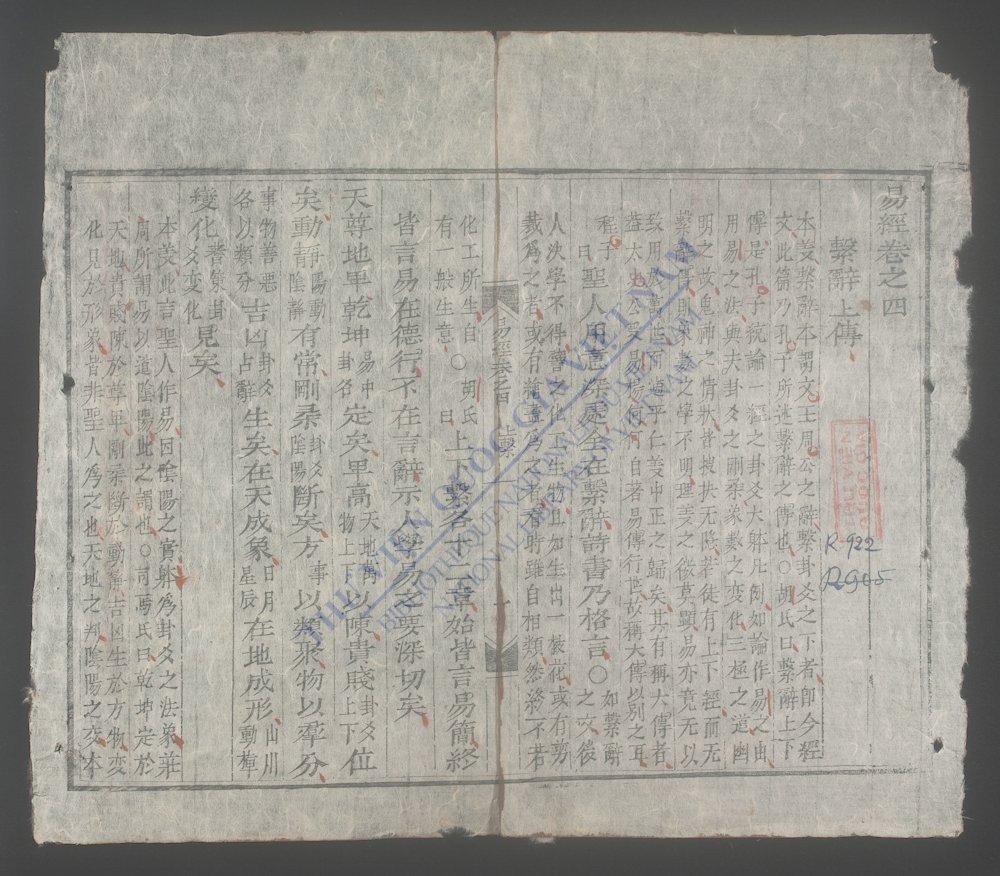 易經卷之四
繫辭上傳
本義繫辭本謂文王周公之辭繫卦爻之下者卽今經
文此篇乃孔子所述繫辭之傳也○胡氏曰繫辭上下
傳是孔子統論一經之卦爻大躰凡例如論作易之由
用易之法與夫卦爻之剛柔象數之變化三極之道幽
明之故鬼神之情狀皆搜抉无隱若徒有上下經而无
繫辭
之學不明理義之微莫顯易亦竟无以
致用於萬世而
乎仁義中正之歸矣其有稱大傳者
蓋太史公受易楊何何自著易傳行世故稱大傳以別之耳
程子曰聖人用意深處全在繫辭詩書乃格言○如繫辭之文後
人決學不得譬之化工生物且如生出一枝花或有剪
裁爲之者或有繪畫爲之者看時雖自相類然終不若
化工所生自有一般生意○胡氏曰上下繫各十二章始皆言易簡終
皆言易在德行不在言辭示人學易之要深切矣
天尊地卑乾坤易中卦名定矣卑高天地萬物上下以陳貴賤卦爻上下位
矣動靜陽動陰靜有常剛柔卦爻陰陽斷矣方事以類聚物以羣分
事物善惡各以類分吉凶卦爻占辭生矣在天成象日月星辰在地成形山川動植
變化蓍策卦爻變化見矣
本義此言聖人作易因陰陽之實躰爲卦爻之法象莊
周所謂易以道陰陽此之謂也○司馬氏曰乾坤定於
天地貴賤陳於尊卑剛柔斷於動靜吉凶生於方物變
化見於形象者非聖人爲之也天地之判陰陽之交本
易經卷之四
上繫
一
R.922
R905
THƯ VIỆN QUỐC GIA VIỆT NAM
BIBLIOTHEQUE NATIONALE DU VIETNAM
NATIONAL LIBRARY OF VIETNAM